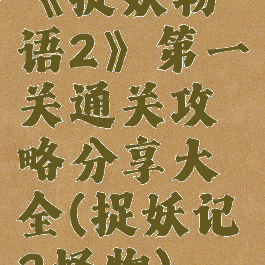 《捉妖物
语2》第一
关通关攻
略分享大
全(捉妖记
2怪物)